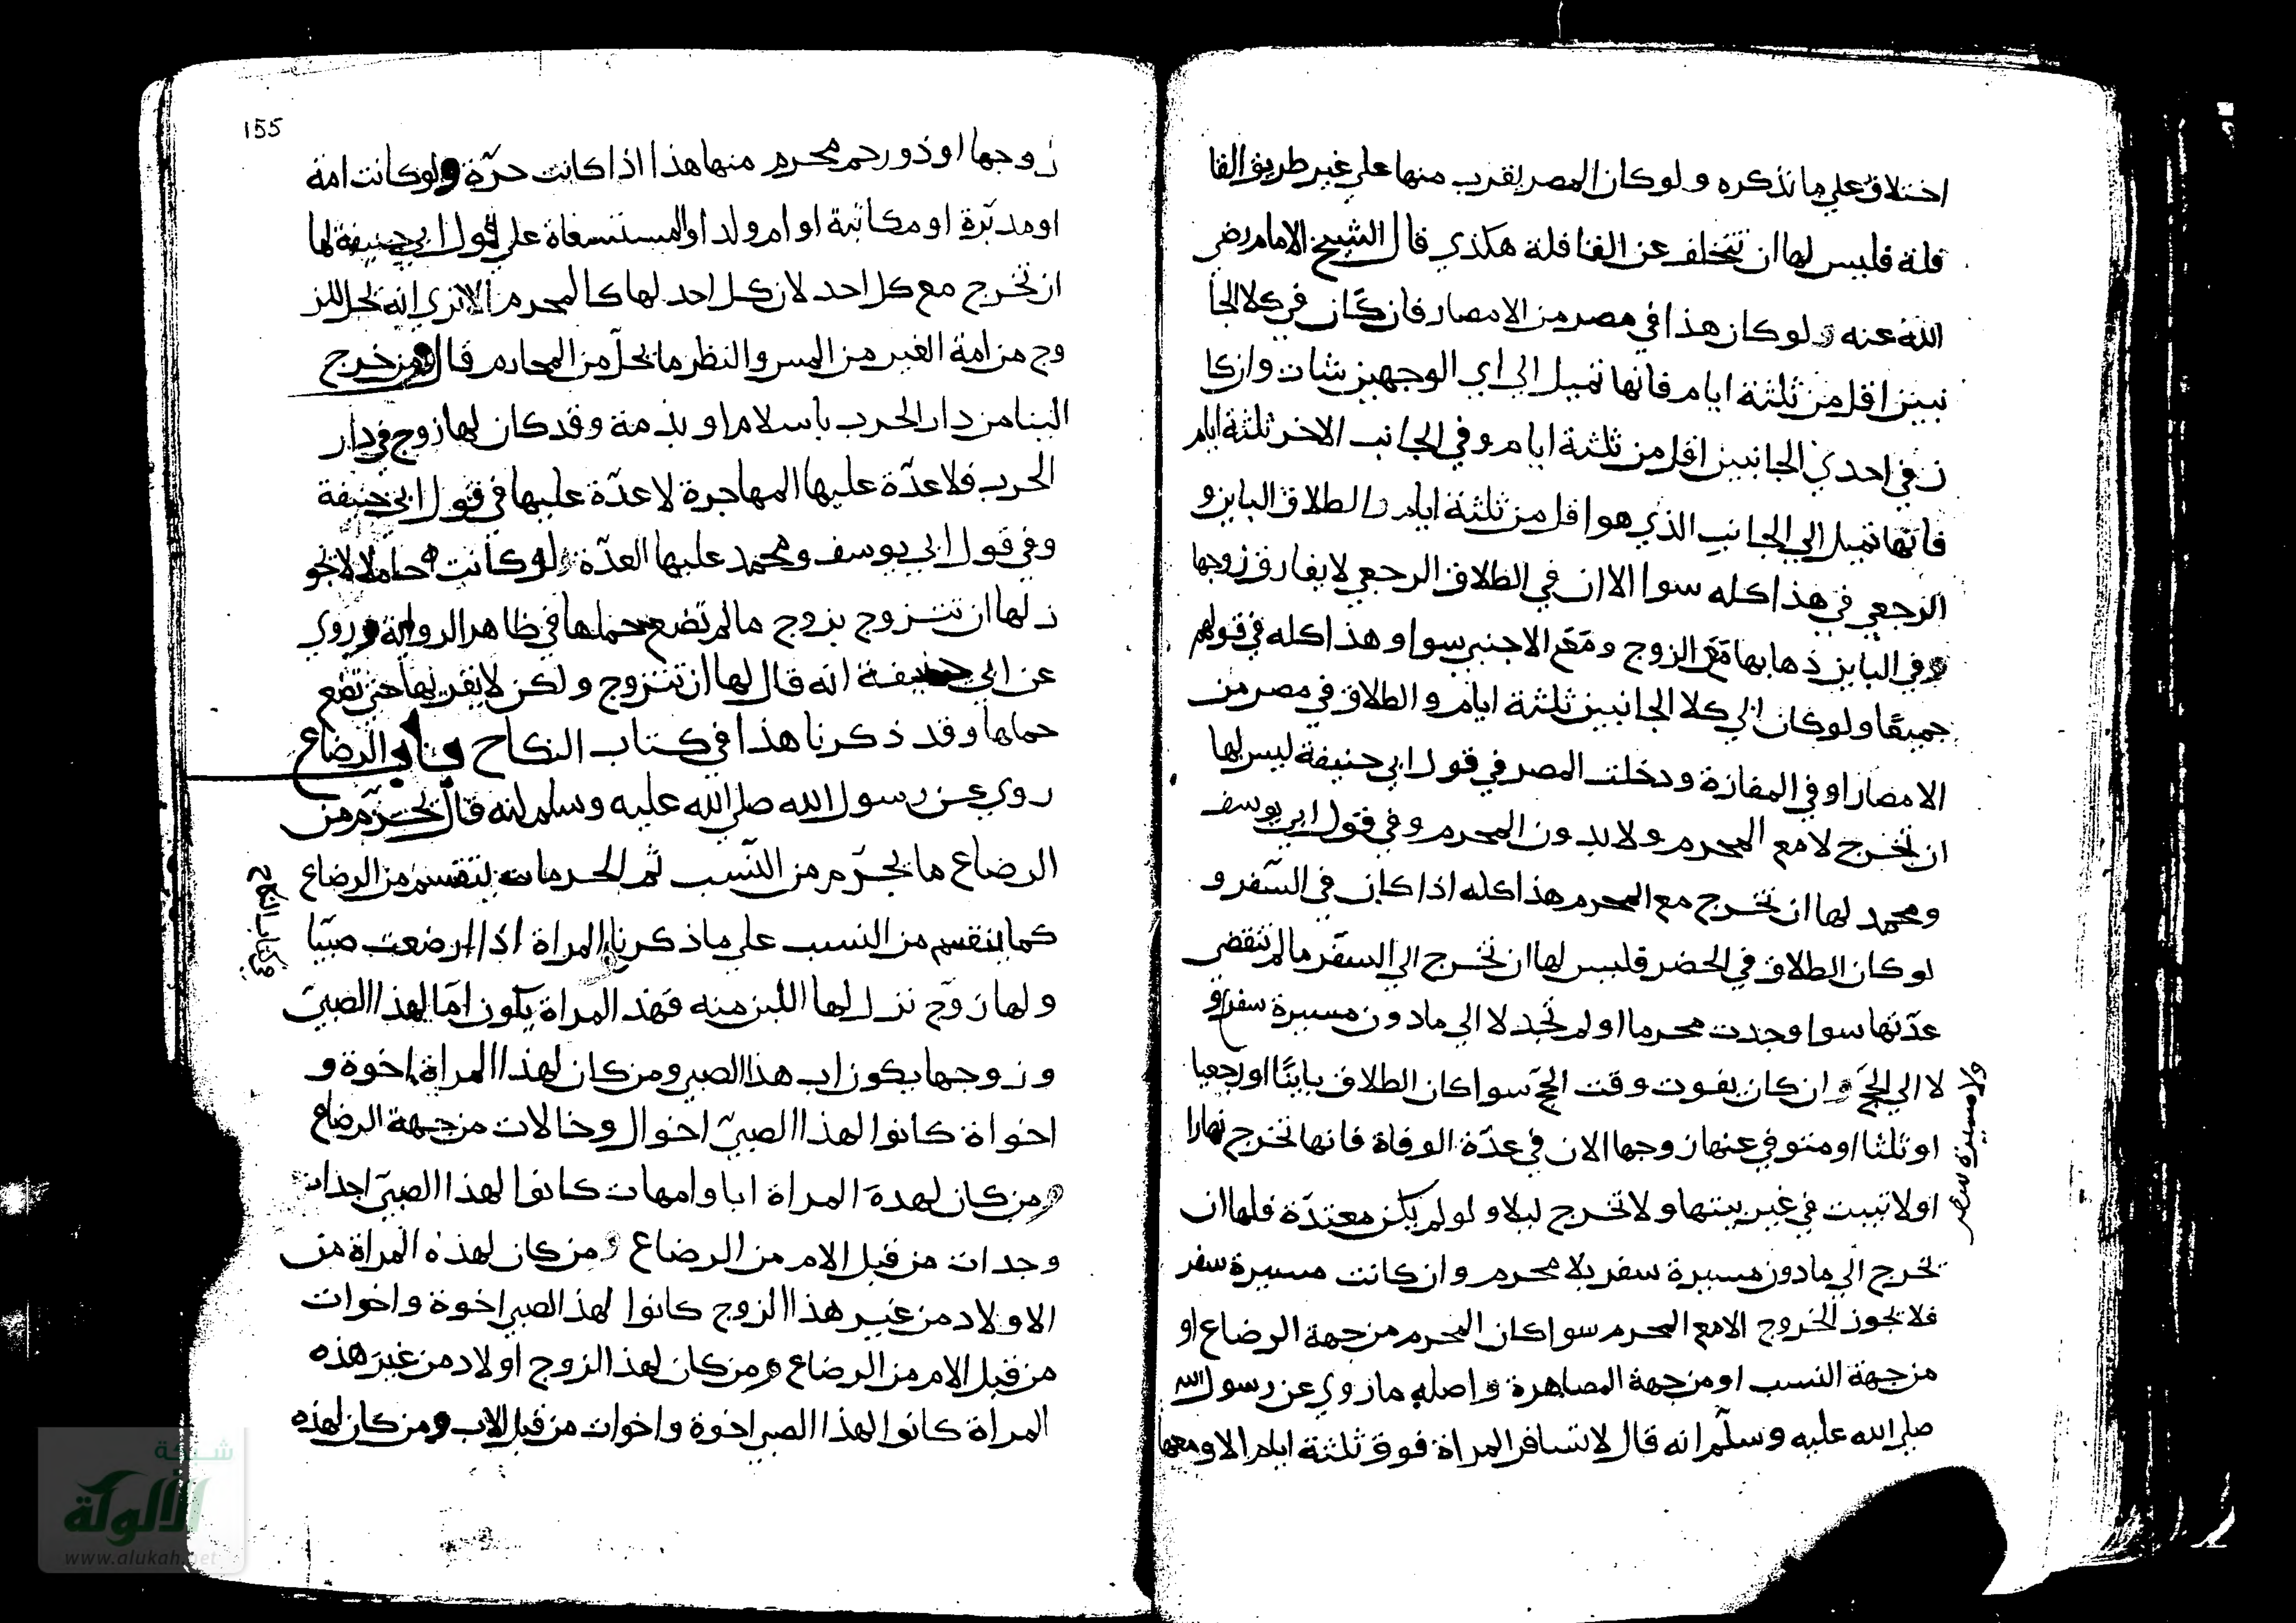 اختلاف علي ما نذكره ولو كان المصر بقرب منها علي غير طريق القا
فلة فليس لها ان تتخلف عن القافلة هكذي قال الشيخ الامام رضي
الله عنه ولو كان هذا في مصر من الامصار فان كان في كلا الجا
نبين اقل من ثلثة ايام فانها تميل الي اي الوجهين شات وان كا
ن في احدي الجانبين اقل من ثلثة ايام وفي الجانب الاخر ثلثة ايام
فانها تميل الي الجانب الذي هو اقل من ثلثة ايام والطلاق الباين و
الرجعي في هذا كله سوا الا ان في الطلاق الرجعي لا يفارق زوجها
وفي الباين ذهابها مع الزوج ومع الاجنبي سوا وهذا كله في قولهم
جميعا ولو كان الي كلا الجانبين ثلثة ايام والطلاق في مصر من
الامصار او في المفازة ودخلت المصر في قول ابي حنيفة ليس لها
ان تخرج لا مع المحرم ولا بدون المحرم وفي قول ابي يوسف
ومحمد لها ان تخرج مع المحرم هذا كله اذا كان في السفر و
لو كان الطلاق في الحضر فليس لها ان تخرج الي السفر ما لم تنقضي
عدتها سوا وجدت محرما او لم تجد لا الي مادون مسيرة سفر و
لا الي الحج وان كان يفوت وقت الحج سوا كان الطلاق باينا او رجعيا
او ثلثا او متوفي عنها زوجها الا ان في عدة الوفاة فانها تخرج نهارا
او لا تبيت في غير بيتها ولا تخرج ليلا ولو لم يكن معتدة فلها ان
تخرج الي مادون مسيرة سفر بلا محرم وان كانت مسيرة سفر
فلا تجوز الخروج الا مع المحرم سوا كان المحرم من جهة الرضاع او
من جهة النسب او من جهة المصاهرة واصله ما روي عن رسول الله
صلي الله عليه وسلم انه قال لا تسافر المراة فوق ثلثة ايام الا ومعها
ولا مسيرة سفر
155
زوجها او ذو رحم محرم منها هذا اذا كانت حرة ولو كانت امة
او مدبرة او مكاتبة او ام ولد او المستسعاة علي قول ابي حنيفة لها
ان تخرج مع كل احد لان كل احد لها كالمحرم الا تري انه يحل للز
وج من امة الغير من المس والنظر ما يحل من المحارم قال ومن خرج
الينا من دار الحرب باسلام او بذمة وقد كان لها زوج في دار
الحرب فلا عدة عليها المهاجرة لا عدة عليها في قول ابي حنيفة
وفي قول ابي يوسف ومحمد عليها العدة ولو كانت حاملا لا يجو
ز لها ان تتزوج بزوج ما لم تضع حملها في ظاهر الرواية وروي
عن ابي حنيفة انه قال لها ان تتزوج ولكن لا يقربها حتي تضع
حملها وقد ذكرنا هذا في كتاب النكاح باب الرضاع
روي عن رسول الله صلي الله عليه وسلم انه قال يحرم من
الرضاع ما يحرم من النسب ثم الحرمات ينقسم من الرضاع
كما ينقسم من النسب علي ما ذكرنا المراة اذا ارضعت صبيا
ولها زوج نزل لها اللبن منه فهذ المراة يكون اما لهذا الصبي
وزوجها يكون اب هذا الصبي ومن كان لهذا المراة اخوة و
اخواة كانوا لهذا الصبي اخوال وخالات من جهة الرضاع
ومن كان لهدة المراة ابا وامهات كانوا لهذا الصبي اجدات
وجدات من قبل الام من الرضاع ومن كان لهذه المراة من
الاولاد من غير هذا الزوج كانوا لهذ الصبي اخوة واخوات
من قبل الام من الرضاع ومن كان لهذ الزوج اولاد من غير هذه
المراة كانوا لهذا الصبي اخوة واخوات من قبل الاب ومن كان لهذه
في كتاب النكاح
شبكة
الألوكة
www.alukah.net